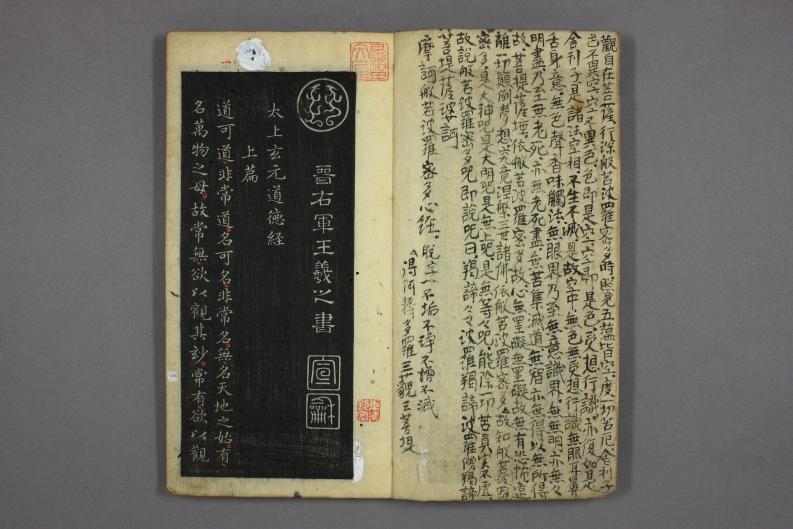 觀自在菩薩行深般若波羅密多時照見五蘊皆空度一切苦厄舍利子
色不異空空不異色色即是空空即是色受想行識亦復如是
舍利子是諸法空相不生不滅是故空中無色無受想行識無眼耳鼻
舌身意無色聲香味觸法無眼界乃至無意識界無無明亦無々
明盡乃至無老死亦無老死盡無苦集滅道無智亦無得以無所得
故菩提薩埵依般若波羅密多故心無罣礙無罣礙故無有恐怖遠
離一切顛倒夢想究竟涅槃三世諸佛依般若波羅密多故知般若波羅
密多是大神呪是大明呪是無上呪是無等々呪能除一切苦真實不虛
故說般若波羅密多呪即說呪曰揭諦々々波羅揭諦波羅僧揭諦
菩提薩婆訶
摩訶般若波羅密多心經 脫字 不垢不淨不增不減
得阿耨多羅三藐三菩提
晉右軍王羲之書
太上玄元道德經
上篇
道可道非常道名可名非常名無名天地之始有
名萬物之母故常無欲以觀其玅常有欲以觀